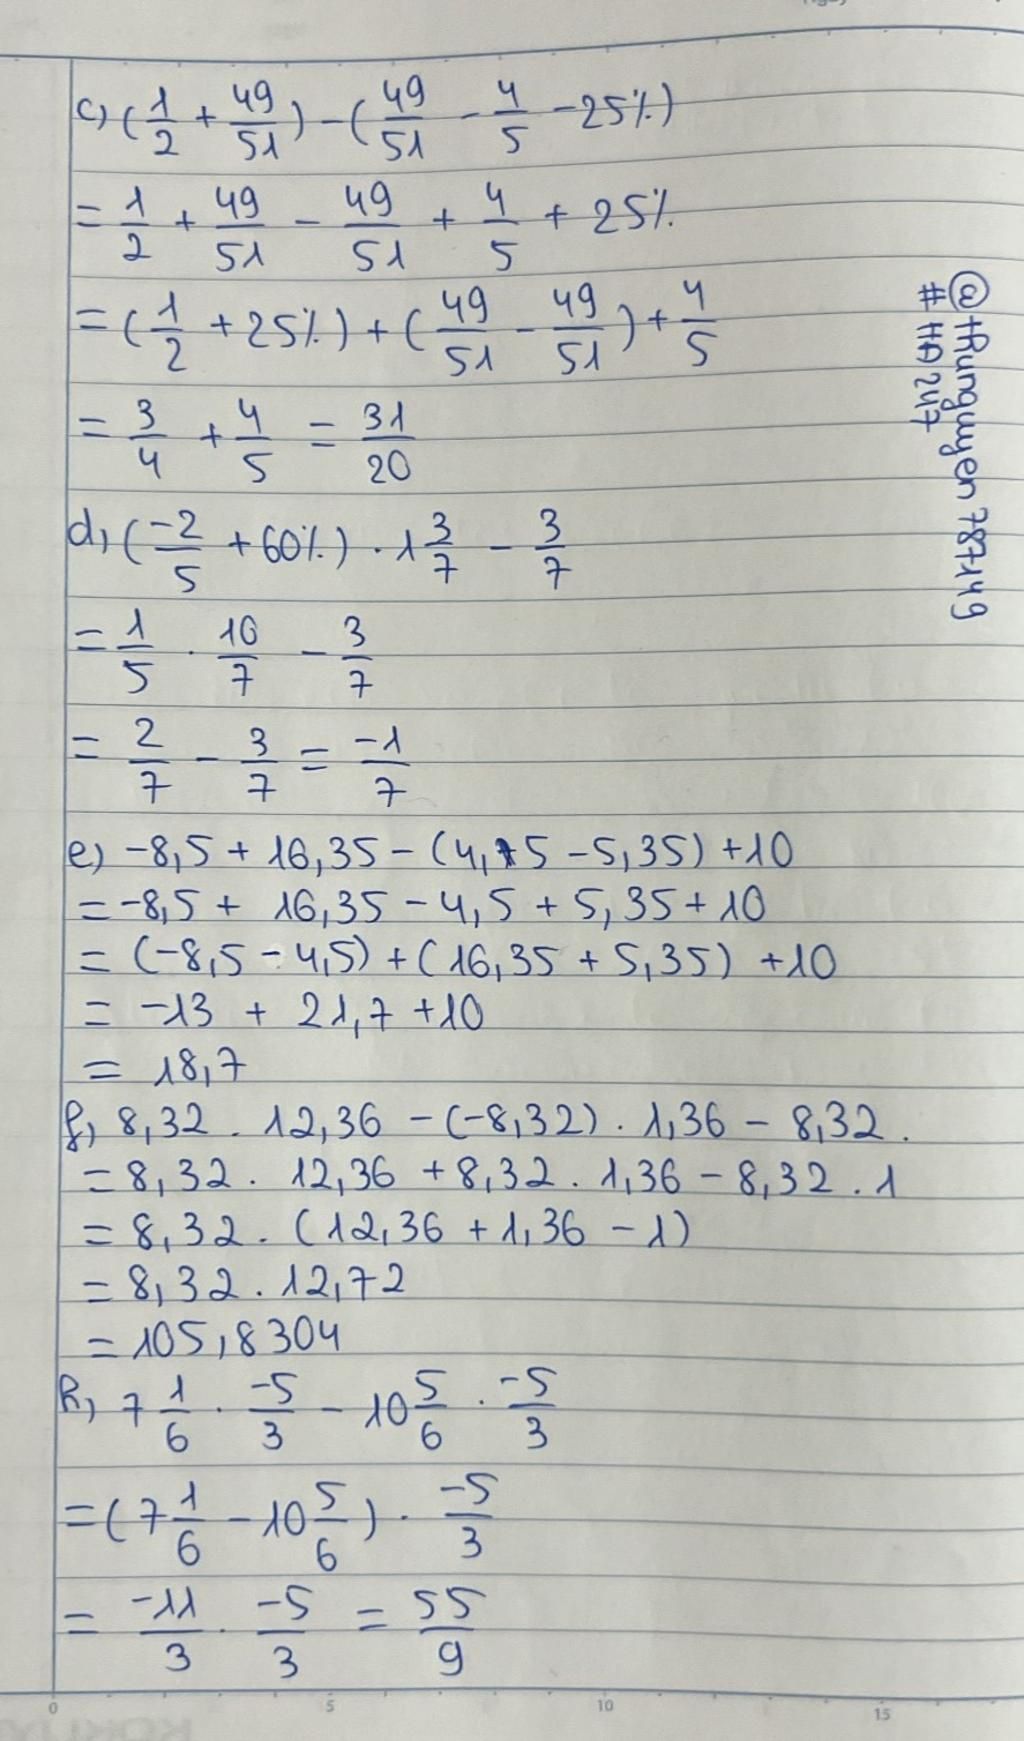 c) (1/2 + 49/51) - (49/51 - 4/5 - 25%)
= 1/2 + 49/51 - 49/51 + 4/5 + 25%
= (1/2 + 25%) + (49/51 - 49/51) + 4/5
= 3/4 + 4/5 = 31/20
d, (-2/5 + 60%) . 1 3/7 - 3/7
= 1/5 . 10/7 - 3/7
= 2/7 - 3/7 = -1/7
e) -8,5 + 16,35 - (4,5 - 5,35) + 10
= -8,5 + 16,35 - 4,5 + 5,35 + 10
= (-8,5 - 4,5) + (16,35 + 5,35) + 10
= -13 + 21,7 + 10
= 18,7
f, 8,32 . 12,36 - (-8,32) . 1,36 - 8,32 .
= 8,32 . 12,36 + 8,32 . 1,36 - 8,32 . 1
= 8,32 . (12,36 + 1,36 - 1)
= 8,32 . 12,72
= 105,8304
h, 7 1/6 . -5/3 - 10 5/6 . -5/3
= (7 1/6 - 10 5/6) . -5/3
= -11/3 . -5/3 = 55/9
@thunguyen78749
#HA247
0 5 10 15